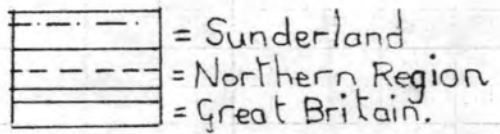 = Sunderland
= Northern Region
= Great Britain.